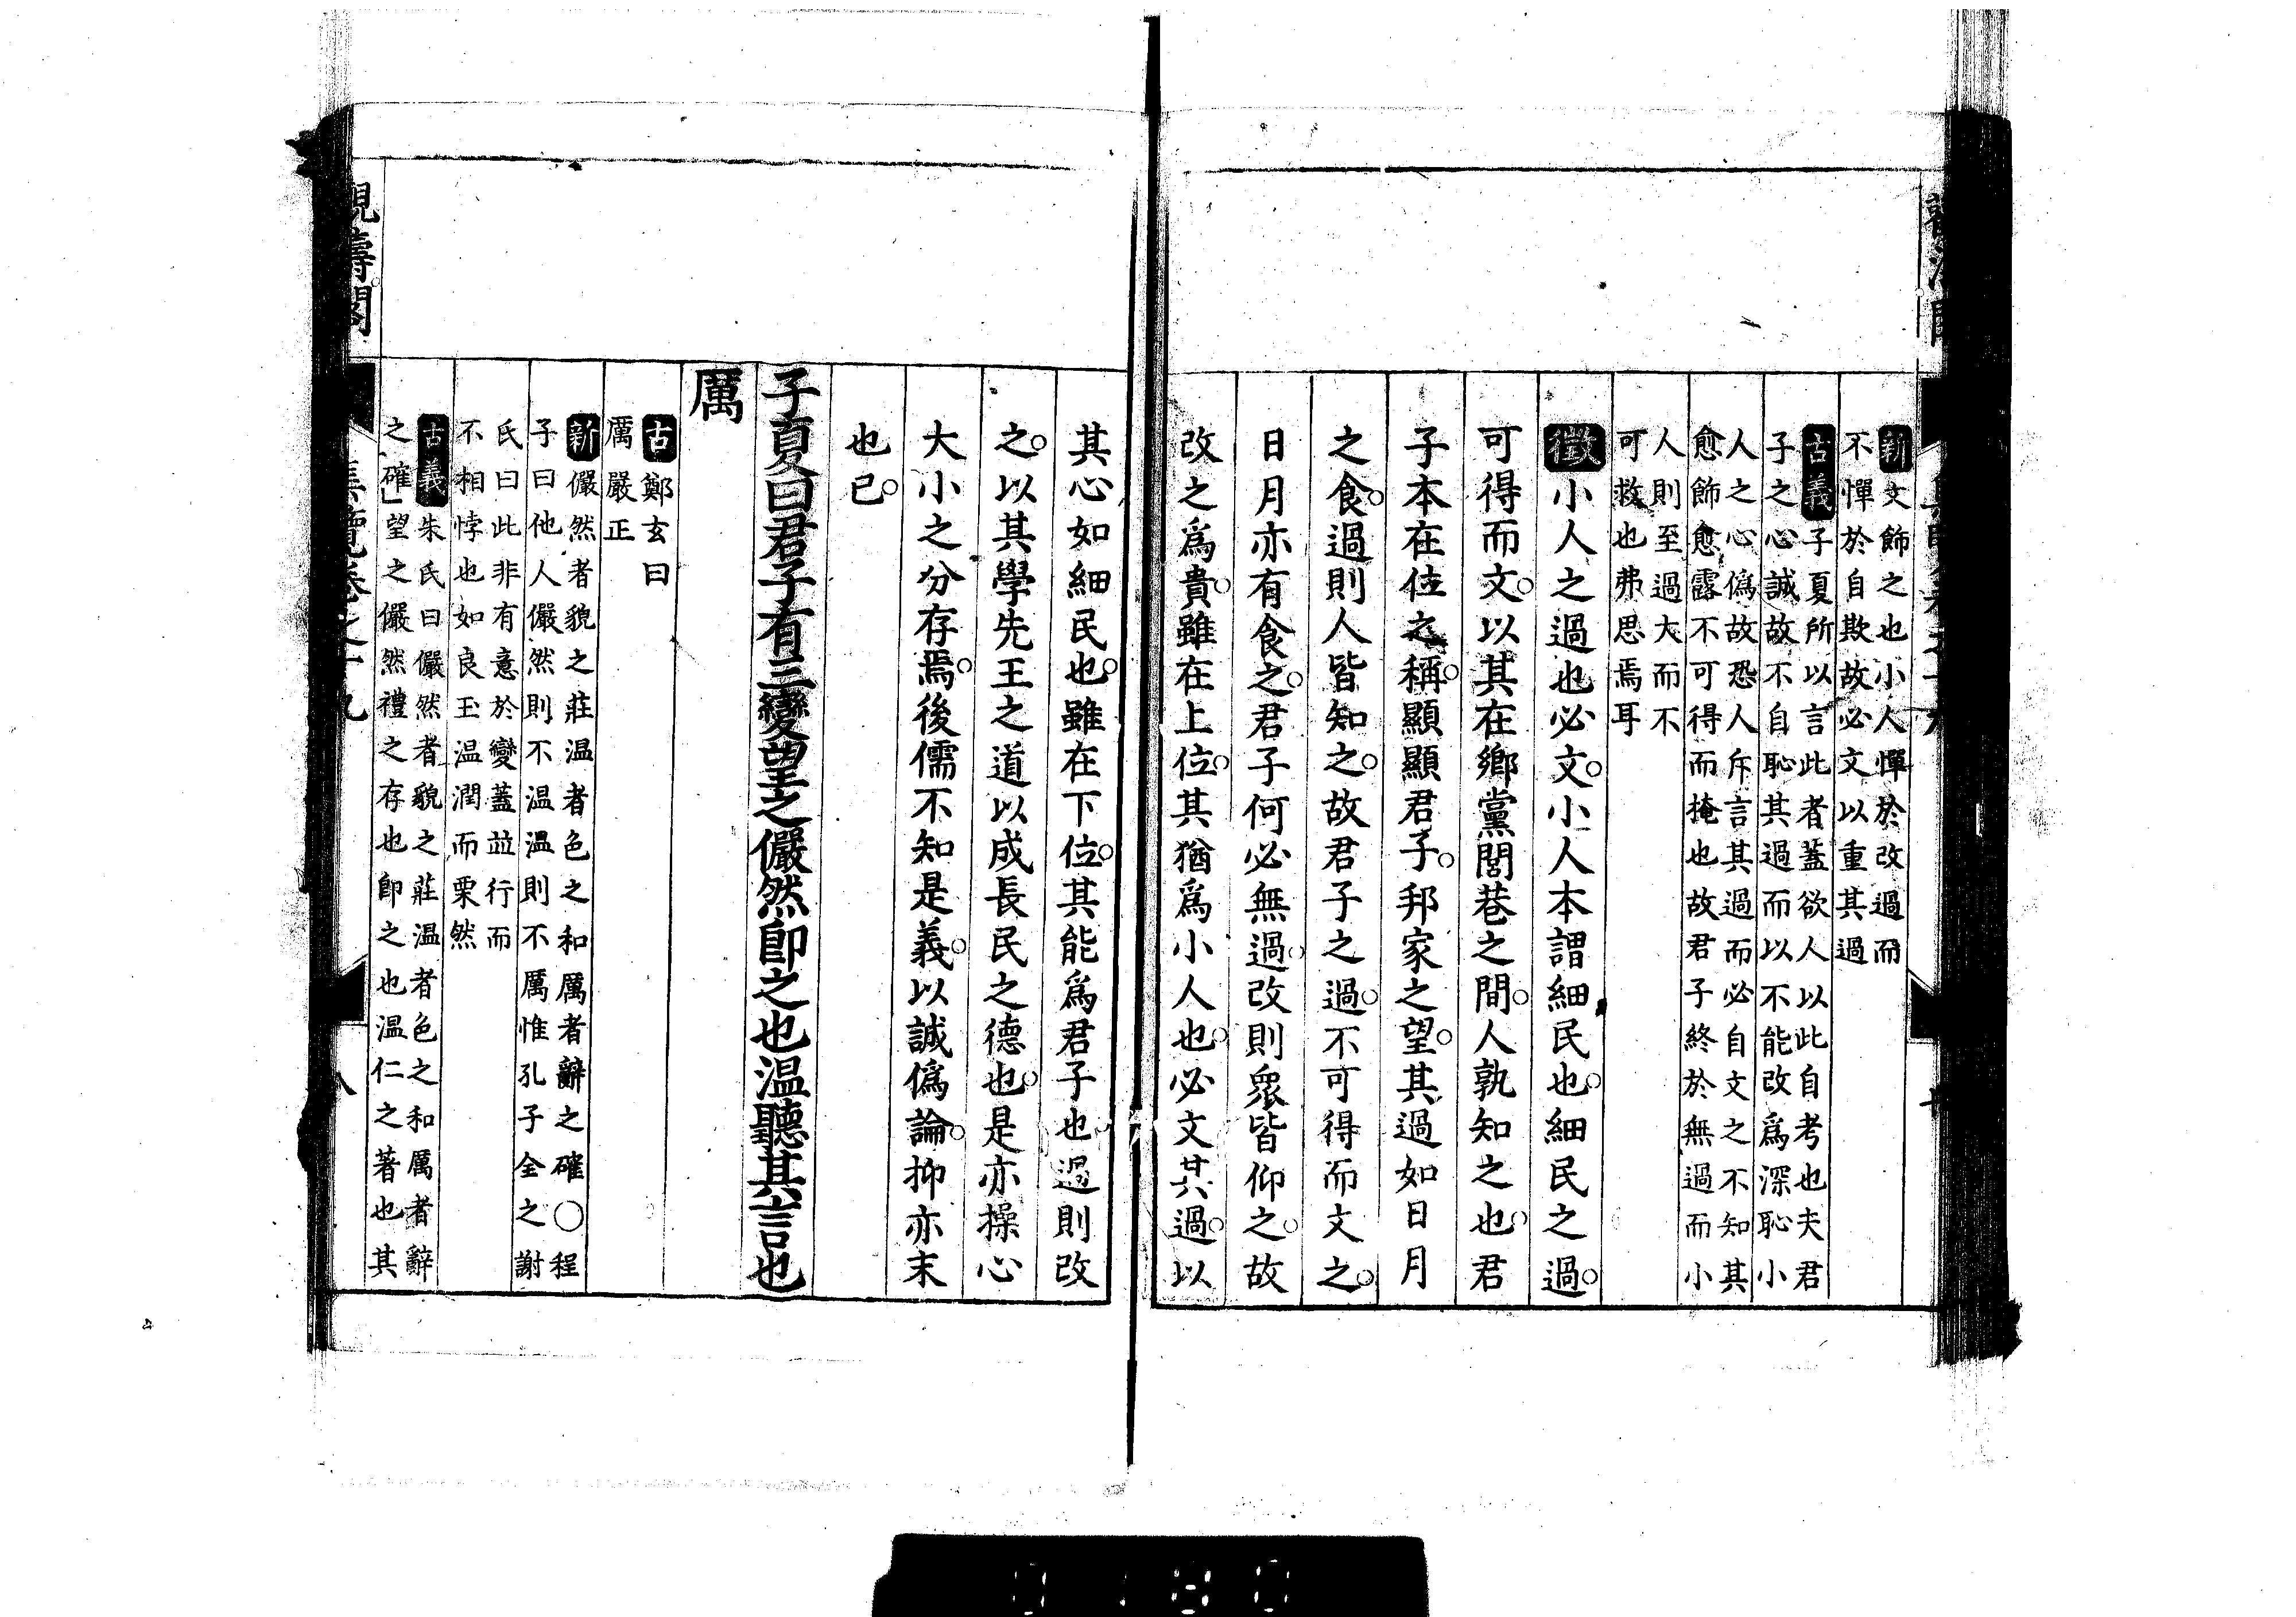 新文飾之也小人憚於改過而
不憚於自欺故必文以重其過
古義子夏所以言此者蓋欲人以此自考也夫君
子之心誠故不自恥其過而以不能改爲深恥小
人之心僞故恐人斥言其過而必自文之不知其
愈飾愈露不可得而掩也故君子終於無過而小
人則至過大而不
可救也弗思焉耳
徵小人之過也必文小人本謂細民也細民之過
可得而文以其在鄉黨閭巷之間人孰知之也君
子本在位之稱顯顯君子邦家之望其過如日月
之食過則人皆知之故君子之過不可得而文之
日月亦有食之君子何必無過改則眾皆仰之故
改之爲貴雖在上位其猶爲小人也必文其過以
其心如細民也雖在下位其能爲君子也過則改
之以其學先王之道以成長民之德也是亦操心
大小之分存焉後儒不知是義以誠僞論抑亦末
也已
子夏曰君子有三變望之儼然卽之也温聽其言也
厲
古鄭玄曰
厲嚴正
新儼然者貌之莊温者色之和厲者辭之確○程
子曰他人儼然則不温温則不厲惟孔子全之謝
氏曰此非有意於變蓋並行而
不相悖也如良玉温潤而栗然
古義朱氏曰儼然者貌之莊温者色之和厲者辭
之確望之儼然禮之存也卽之也温仁之著也其
觀濤閣
集覽卷之十九
八